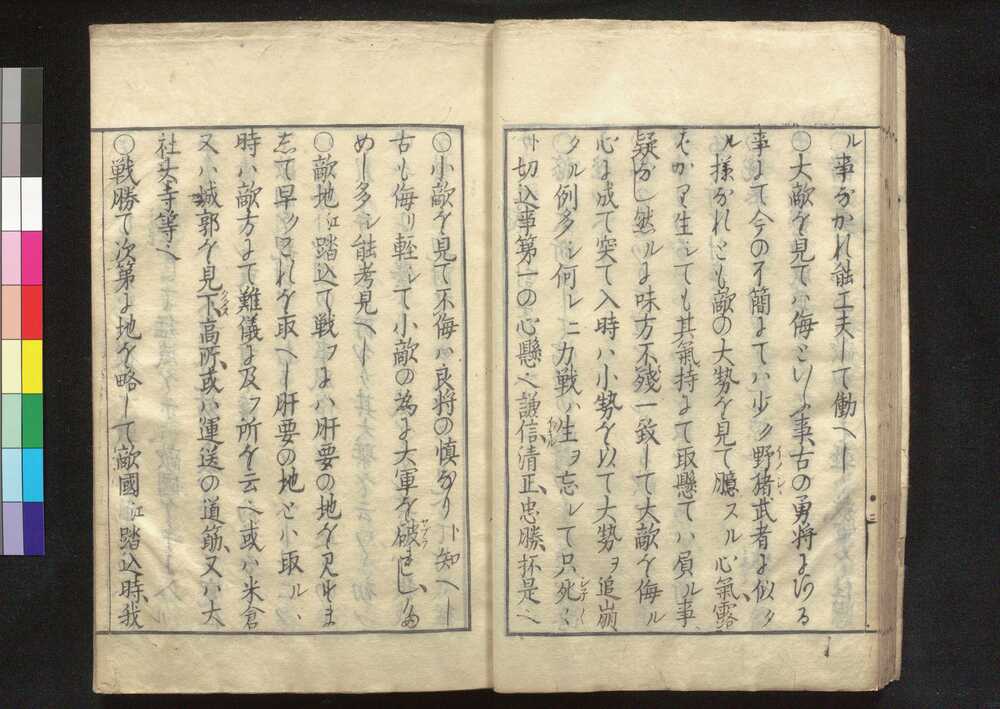 ル事なかれ能工夫して働へし
○大敵を見てハ侮といふ事、古の勇将にある
事にて今の不簡にてハ少ク野猪武者に似タ
ル様なれとも敵の大勢を見て臆スル心氣露
はかり生しても其氣持にて取懸てハ負ル事、
疑なし然ルに味方不残一致して大敵を侮ル
心に成て突て入時ハ小勢を以て大勢ヲ追崩
タル例多シ何レニ力戦ハ生ヲ忘レて只死々
ト切込事第一の心懸へ謙信、清正、忠勝、抔是へ
○小敵を見て不侮ハ良将の慎なり ト知へし
古も侮リ軽シて小敵の為に大軍を破
めし多シ能考見へし
○敵地江踏込て戦ヲにハ肝要の地を見定ま
して早クこれを取へし肝要の地とハ取ル、
時ハ敵方にて難儀に及フ所を云へ或ハ米倉
又ハ城郭を見下、高所、或ハ運送の道筋、又ハ大
社大寺等へ
○戦勝て次第に地を略して敵國江踏込時、我